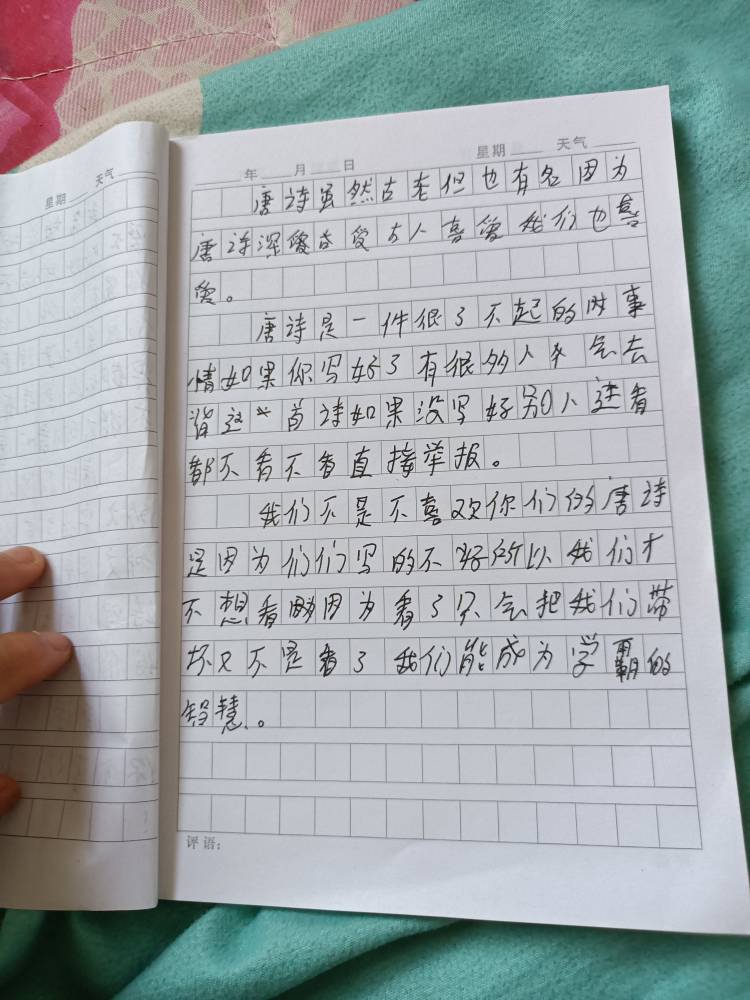 星期 天气
年 月 日 星期 天气
唐诗虽然古老但也有名因为
唐诗深受古人喜爱我们也喜
爱。
唐诗是一件很了不起的时事
情如果你写好了有很多人来会去
背这首诗如果没写好别人连看
都不看不看直接举报。
我们不是不喜欢你们的唐诗
是因为们们写的不好所以我们才
不想看因为看了只会把我们带
坏又不是看了我们能成为学霸的
智慧。
评语: